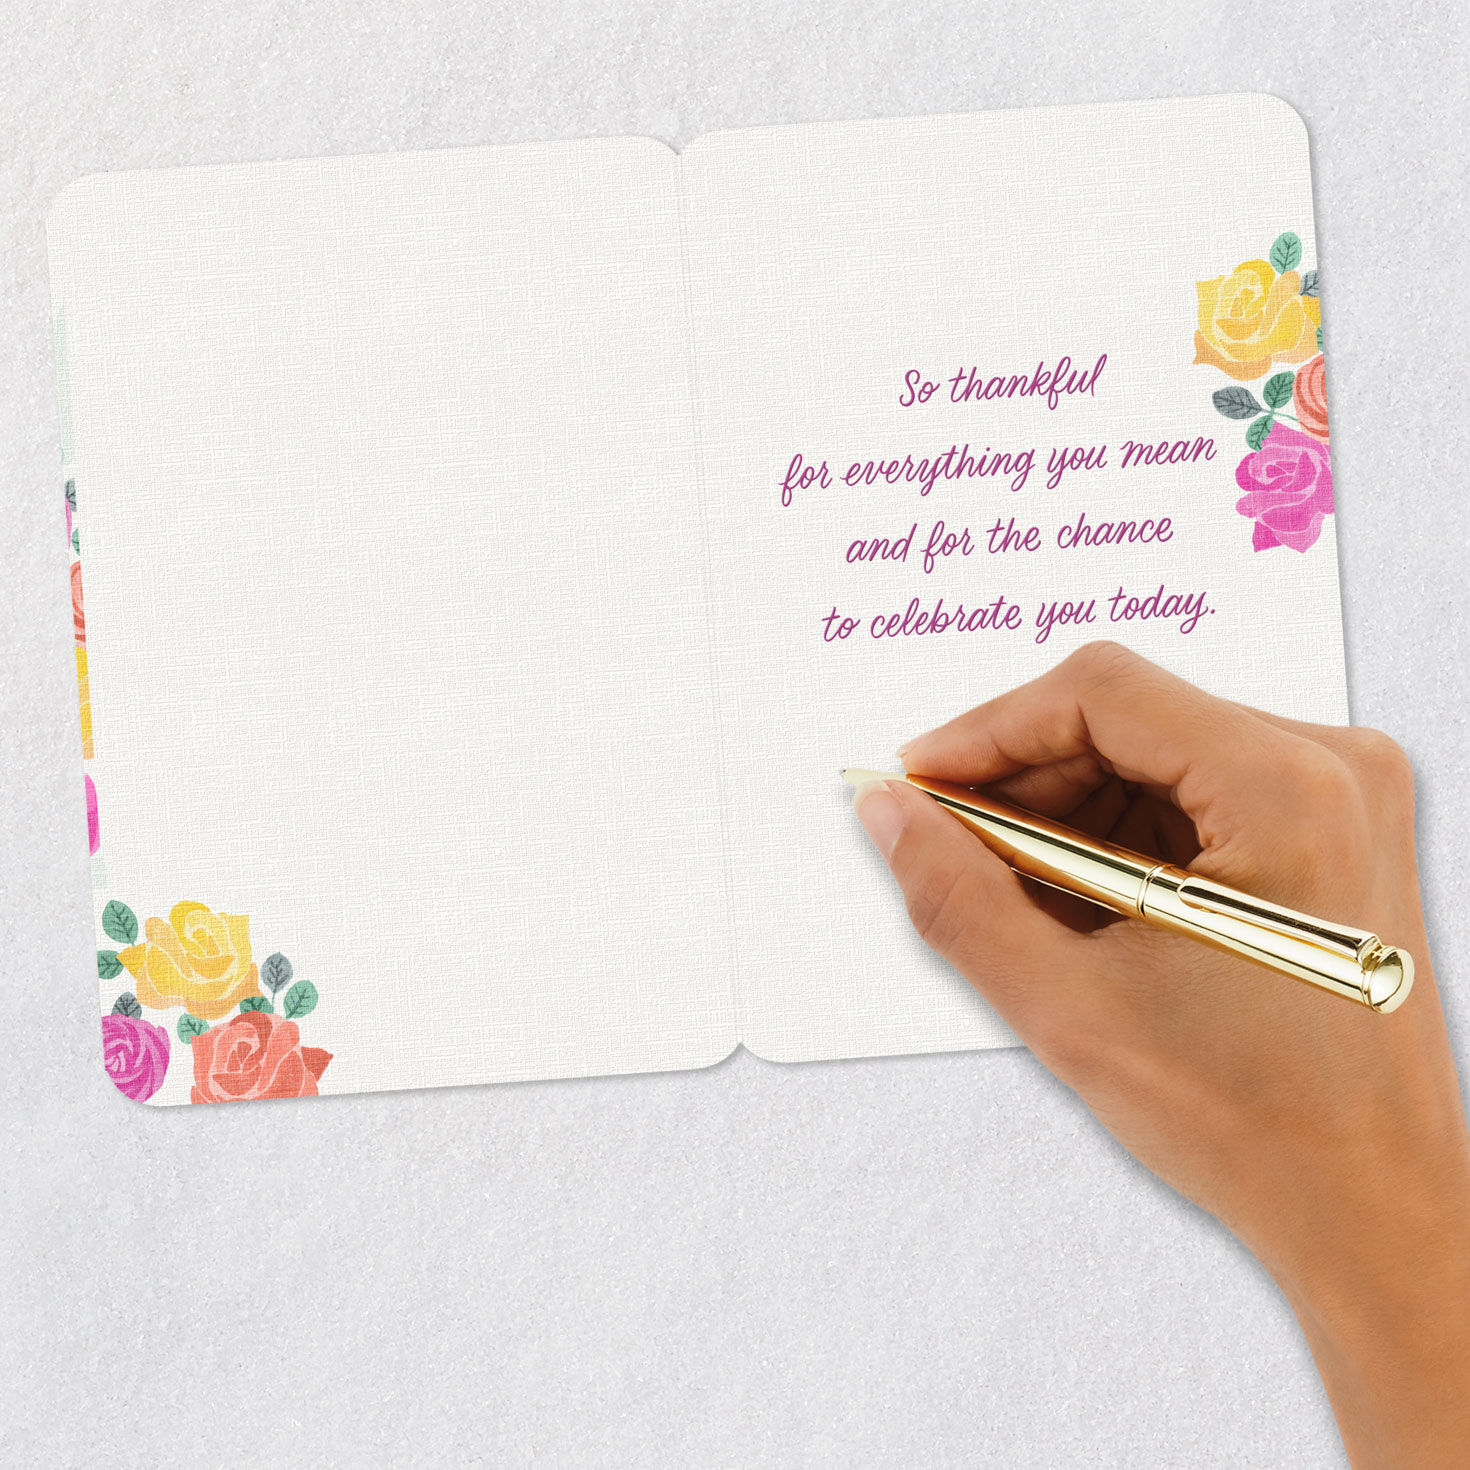 So thankful
for everything you mean
and for the chance
to celebrate you today.